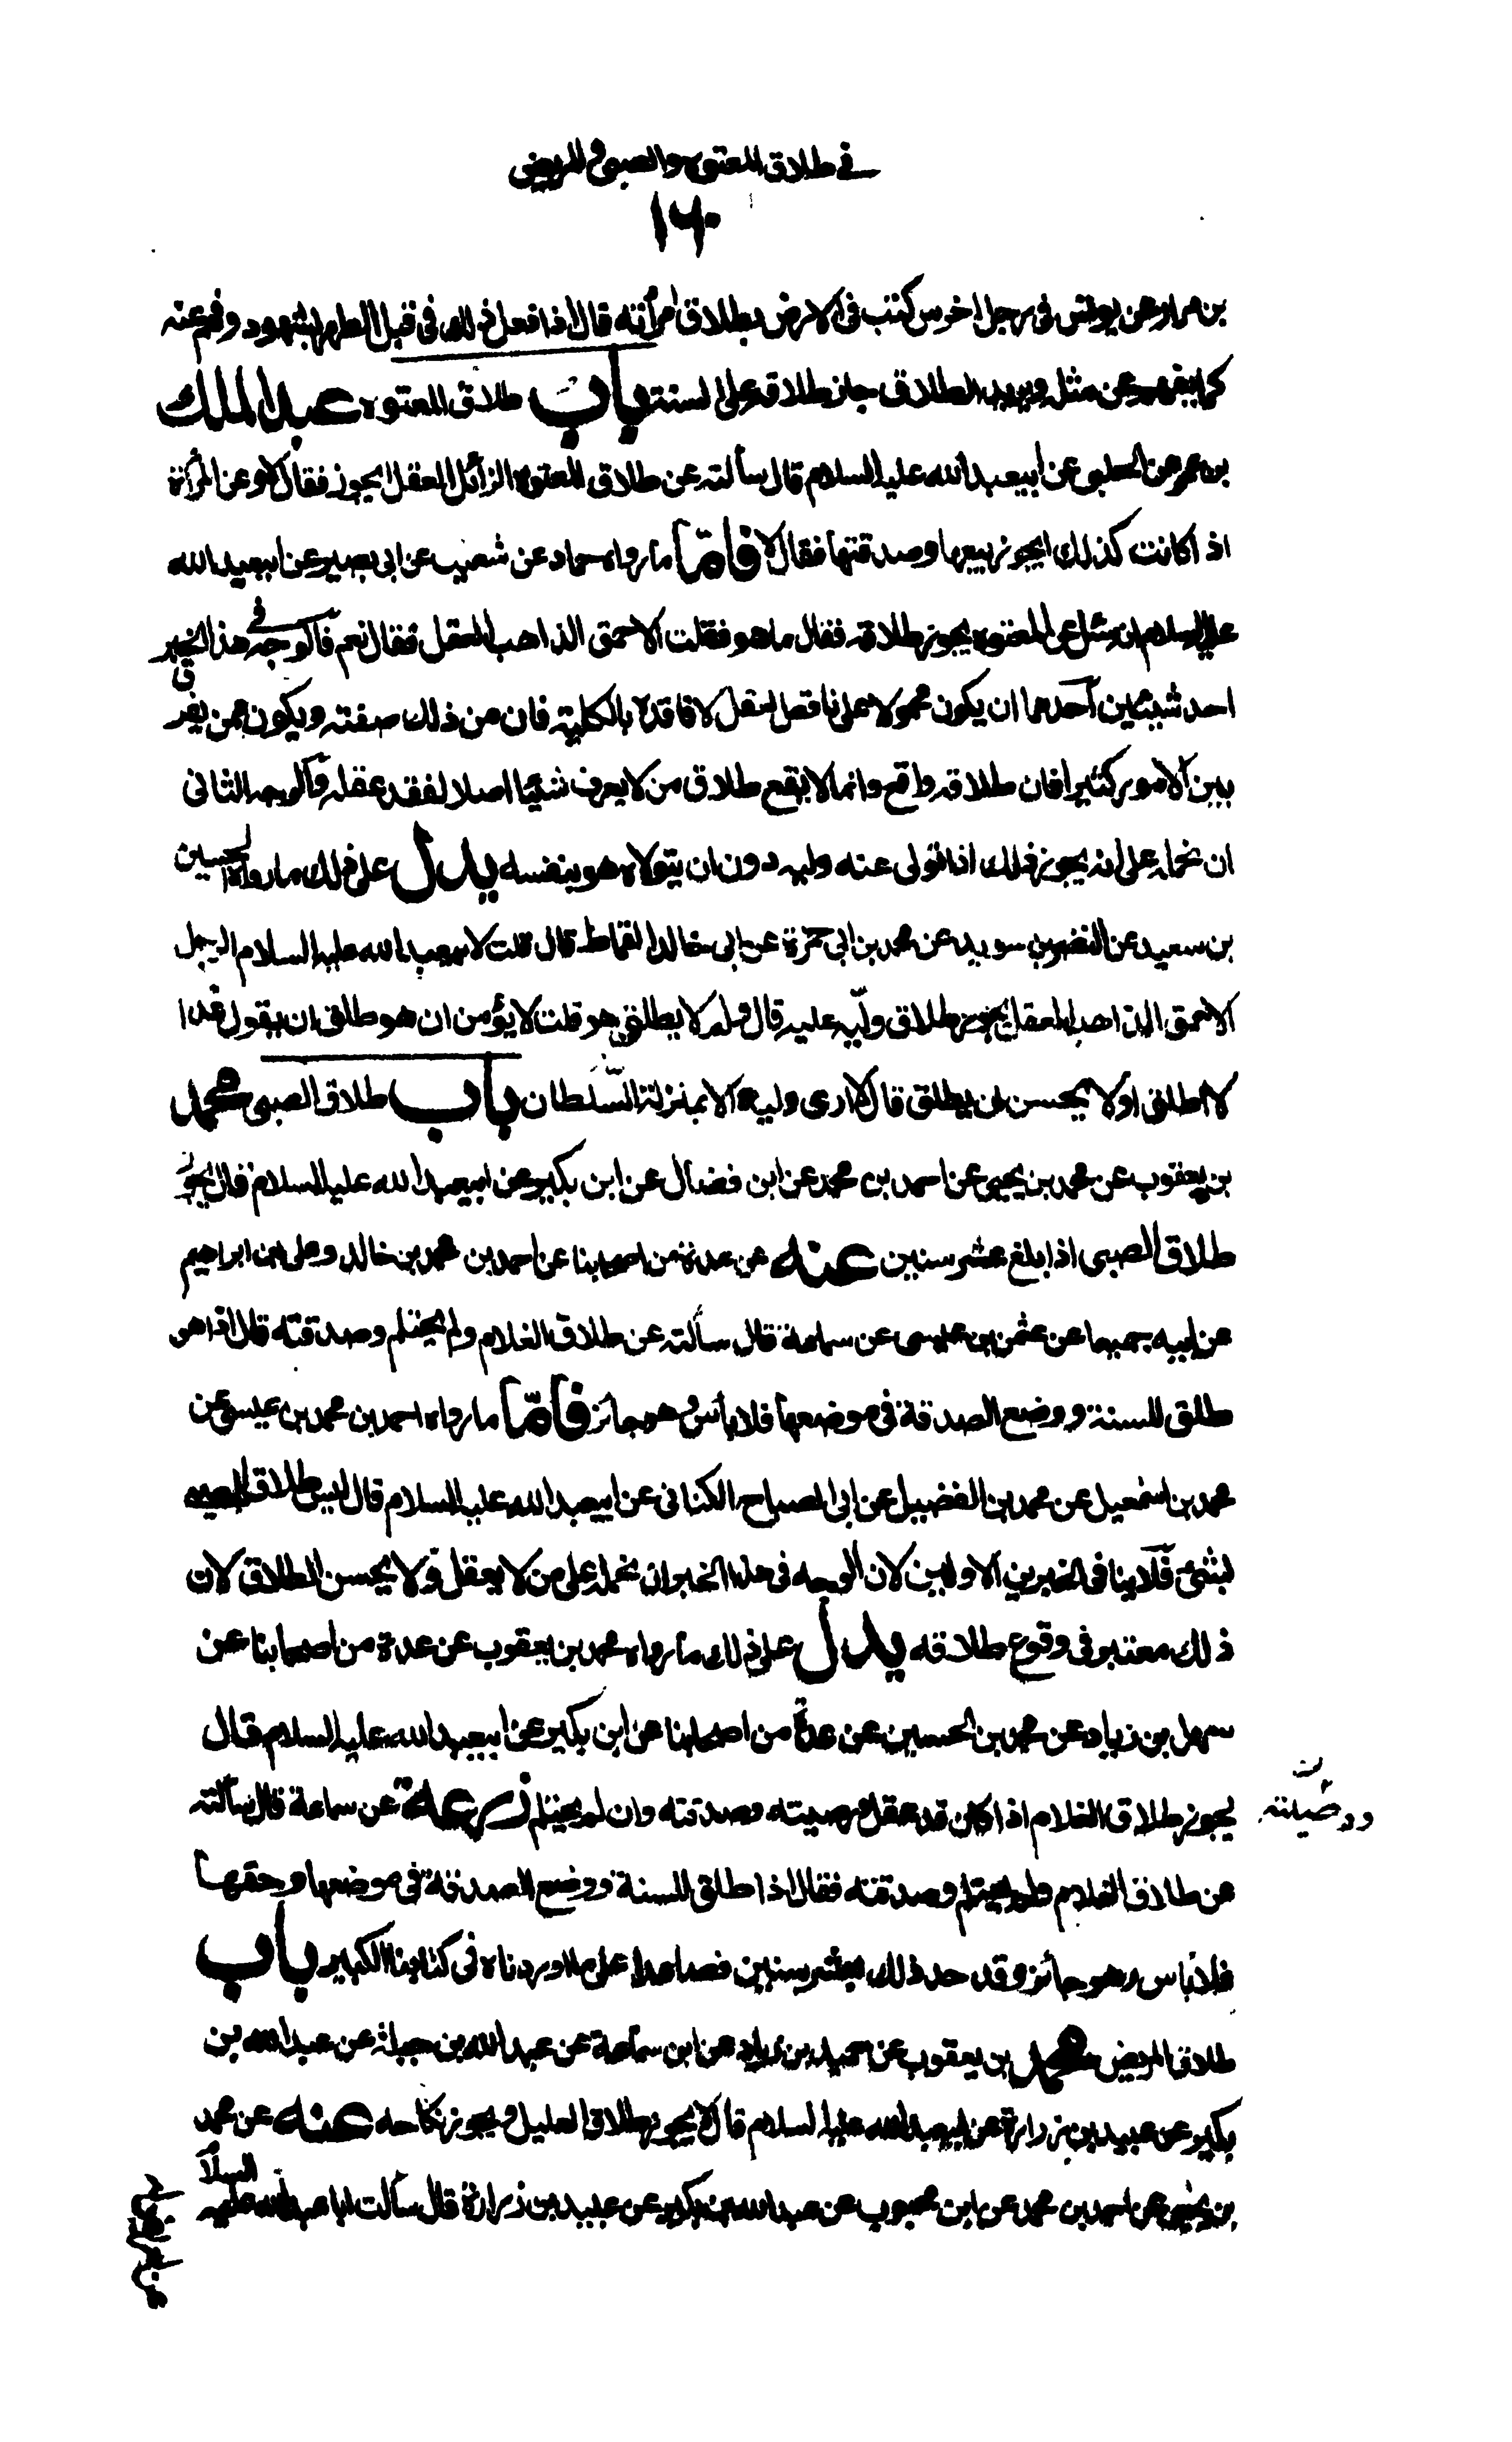 في طلاق المعتوه والصبى والمريض
١٦٠
بن مرار عن يونس فى رجل اخرس كتب فى الارض بطلاق امرأته قال اذا فعل ذلك فى قبل الطهر بشهود وفهم عنه
كما يفهم عن مثله ويريد الطلاق جاز طلاقه على السنة باب طلاق المعتوه عبد الملك
بن عمرو عن الحلبى عن ابيعبد الله عليه السلام قال سألته عن طلاق المعتوه الزائل العقل ايجوز فقال لا وعن المرأة
اذا كانت كذلك ايجوز بيعها وصدقتها فقال لا فامّا ما رواه حماد عن شعيب عن ابى بصير عن ابيعبد الله
عليه السلام انه سئل عن المعتوه يجوز طلاقه فقال ما هو فقلت الاحمق الذاهب العقل فقال نعم فالوجه فى هذا الخبر
احد شيئين احدهما ان يكون محمولا على ناقص العقل لا فاقده بالكلية فان من ذلك صفته ويكون ممن يفرق
بين الامور كثيرا فان طلاقه واقع وانما لا يقع طلاق من لا يعرف شيئا اصلا لفقد عقله والوجه الثانى
ان نحمله على انه يجوز ذلك اذا تولى عنه وليه دون ان يتولاه هو بنفسه يدل على ذلك ما رواه الحسين
بن سعيد عن النضر بن سويد عن محمد بن ابى حمزة عن ابى خالد القماط قال قلت لابيعبد الله عليه السلام الرجل
الاحمق الذاهب العقل يجوز طلاق وليّه عليه قال ولم لا يطلق هو قلت لا يؤمن ان هو طلق ان يقول غدا
لا اطلق او لا يحسن ان يطلق قال لا ارى وليه الا بمنزلة السّلطان باب طلاق الصبى محمد
بن يعقوب عن محمد بن يحيى عن احمد بن محمد عن ابن فضال عن ابن بكير عن ابيعبد الله عليه السلام قال يجوز
طلاق الصبى اذا بلغ عشر سنين عنه عن عدة من اصحابنا عن احمد بن محمد بن خالد وعلى بن ابراهيم
عن ابيه جميعا عن عثمن بن عيسى عن سماعة قال سألته عن طلاق الغلام ولم يحتلم وصدقته قال اذا هو
طلق للسنة ووضع الصدقة فى موضعها فلا بأس وهو جائز فامّا ما رواه احمد بن محمد بن عيسى عن
محمد بن اسمعيل عن محمد بن الفضيل عن ابى الصباح الكنانى عن ابيعبد الله عليه السلام قال ليس طلاق الصبى
بشئ فلا ينافى الخبرين الاولين لان الوجه فى هذا الخبر ان نحمله على من لا يعقل ولا يحسن الطلاق لان
ذلك معتبر فى وقوع طلاقه يدل على ذلك ما رواه محمد بن يعقوب عن عدة من اصحابنا عن
سهل بن زياد عن محمد بن الحسين عن عدة من اصحابنا عن ابن بكير عن ابيعبد الله عليه السلام قال
يجوز طلاق الغلام اذا كان قد عقل ووصيته وصدقته وان لم يحتلم زرعة عن سماعة قال سألته
عن طلاق الغلام ولم يحتلم وصدقته فقال اذا طلق للسنة ووضع الصدقة فى موضعها وحقها
فلا بأس وهو جائز وقد حد ذلك بعشر سنين فصاعدا على ما اوردناه فى كتابنا الكبير باب
طلاق المريض محمد بن يعقوب عن حميد بن زياد عن ابن سماعة عن عبد الله بن جبلة عن عبد الله بن
بكير عن عبيد بن زرارة عن ابيعبد الله عليه السلام قال لا يجوز طلاق العليل ويجوز نكاحه عنه عن محمد
بن يحيى عن احمد بن محمد عن ابن محبوب عن عبد الله بن بكير عن عبيد بن زرارة قال سألت ابا عبد الله عليه السلام